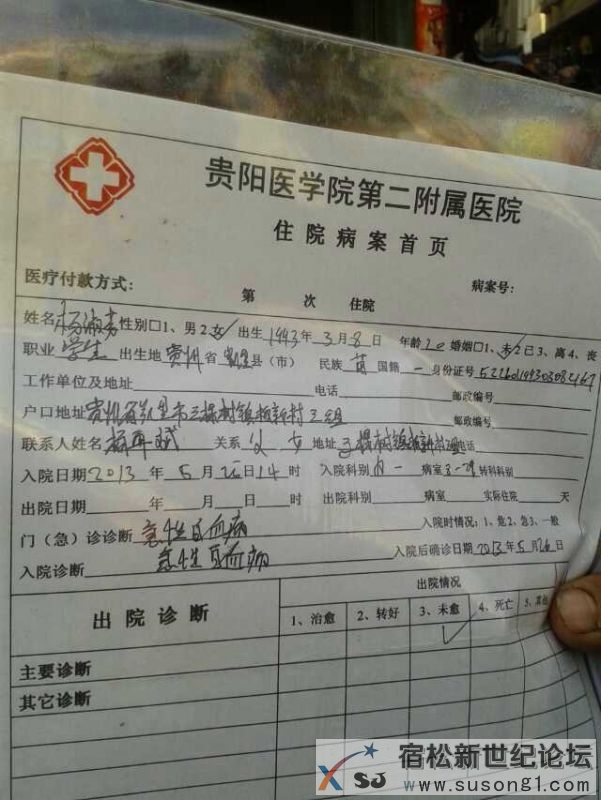 贵阳医学院第二附属医院
住院病案首页
医疗付款方式: 病案号:
第 次 住院
姓名 杨淑芳 性别□1、男2、女 出生 1993年3月8日 年龄20 婚姻□1、未2已3、离4、丧
职业 学生 出生地 贵州省凯里县(市) 民族 苗 国籍 身份证号
工作单位及地址 电话 邮政编号
户口地址 贵州省凯里市三棵树镇 村三组 邮政编号
联系人姓名 关系 父女 地址 三棵树镇 电话
入院日期2013年5月26日14时 入院科别 内一 病室 转科科别
出院日期 年 月 日 时 出院科别 病室 实际住院 天
门(急)诊诊断 急性白血病 入院时情况:1、危2、急3、一般
入院诊断 急性白血病 入院后确诊日期2013年5月26日
出院诊断 出院情况
1、治愈 2、转好 3、未愈 4、死亡 5、其他
主要诊断
其它诊断
宿松新世纪论坛
XSJ www.susong1.com